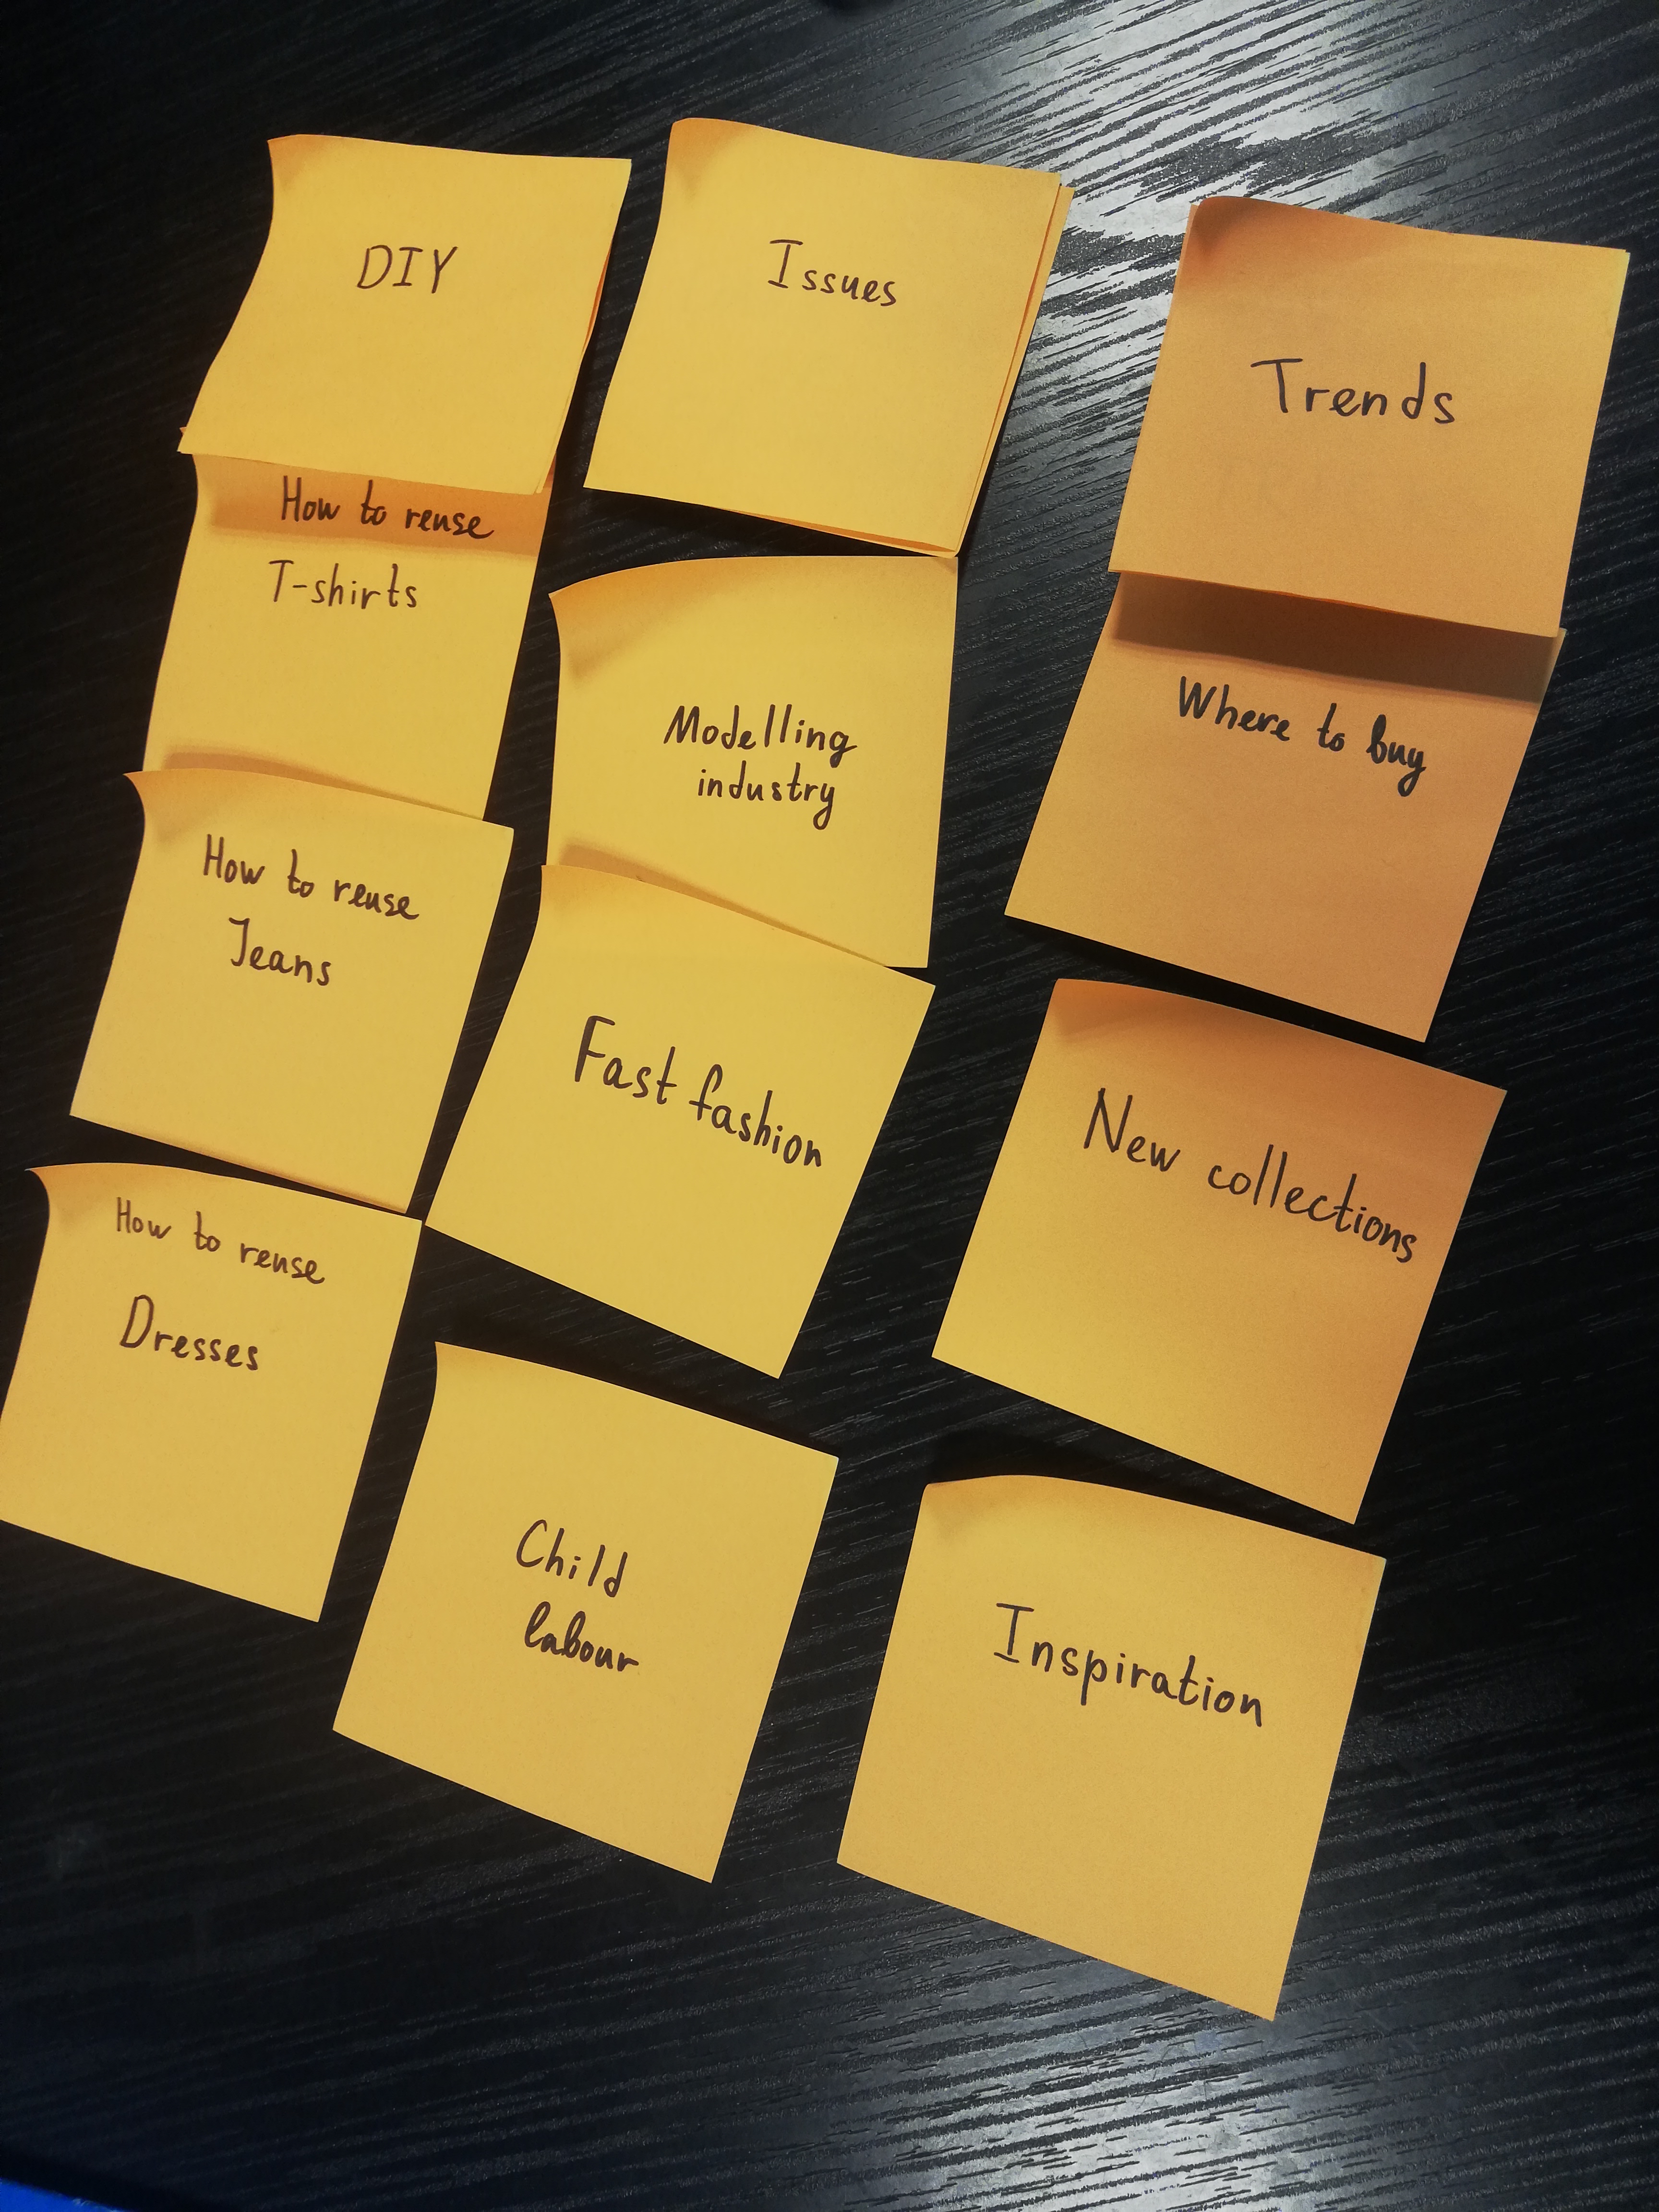 DIY
How to reuse
T-shirts
How to reuse
Jeans
How to reuse
Dresses
Issues
Modelling
industry
Fast fashion
Child
labour
Trends
Where to buy
New collections
Inspiration